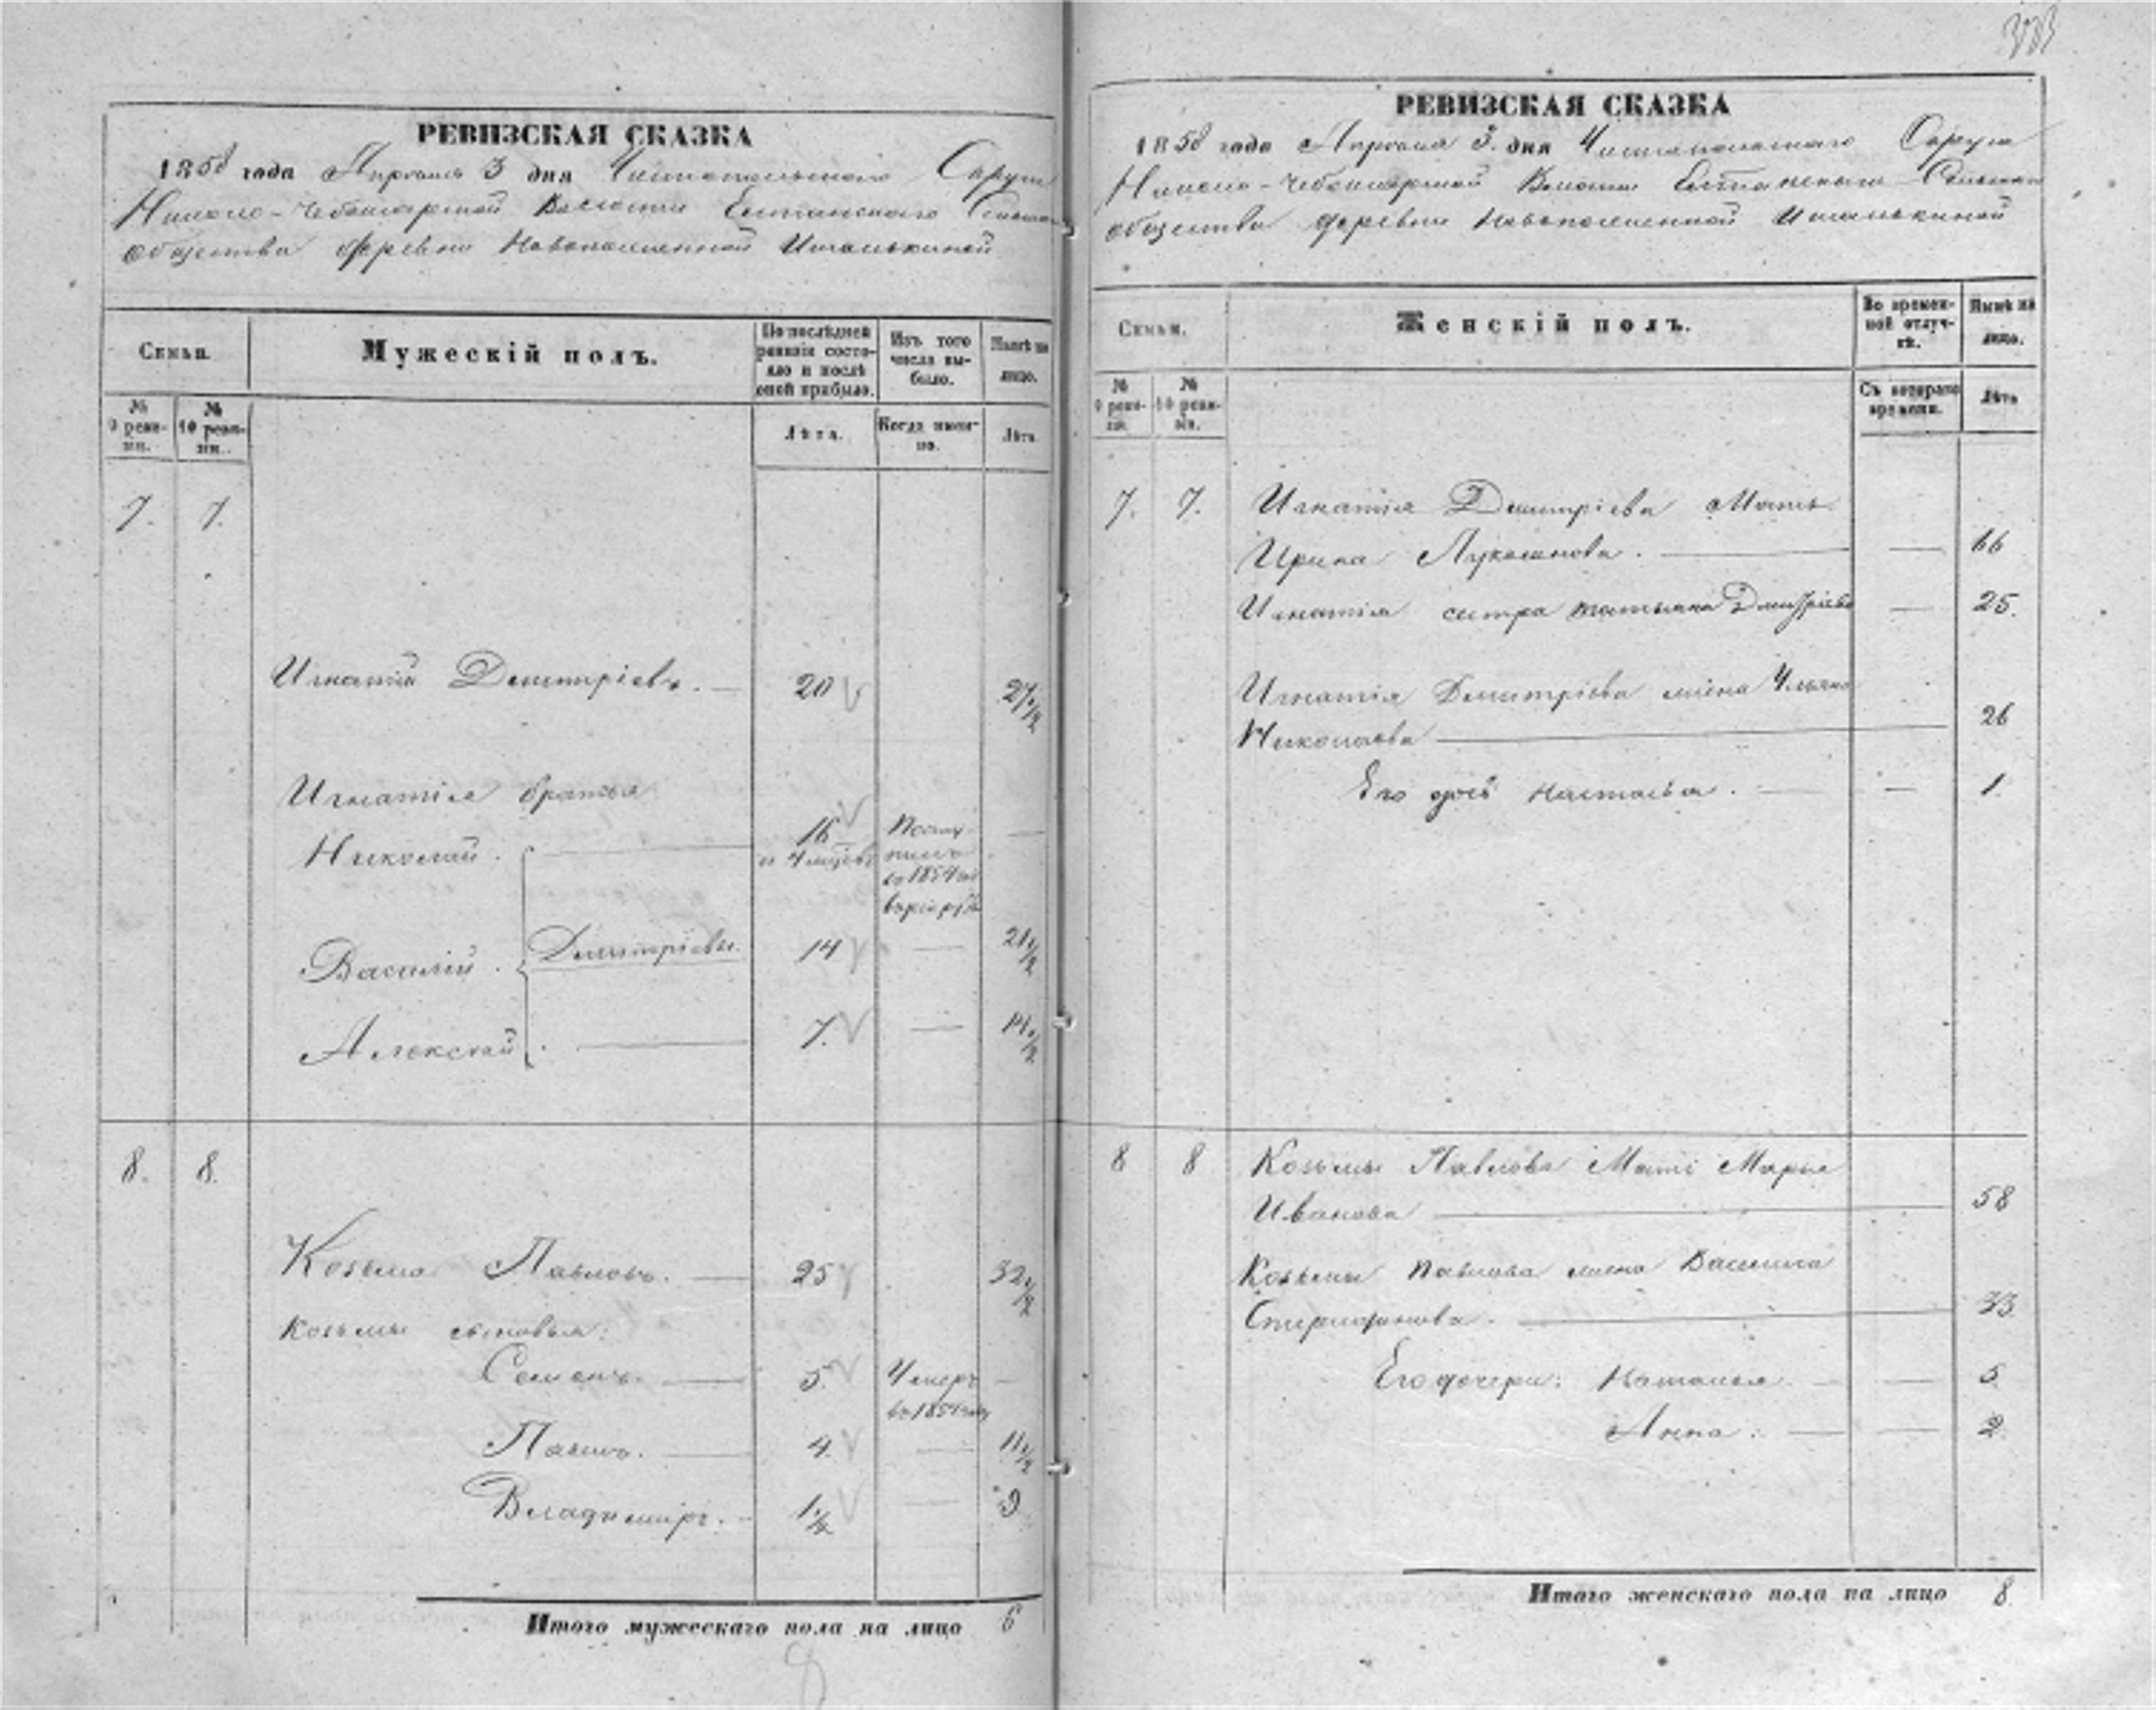 РЕВИЗСКАЯ СКАЗКА
1858 года Апреля 3 дня Чистопольского Округа
-Чебоксарской Волости Елтанского
общества деревни Новопоселенной Ишалькиной
Семьи.
Мужескій полъ.
По послѣдней ревизіи состояло и послѣ оной прибыло.
Изъ того числа выбыло.
Нынѣ на лицо.
№ 9 ревизіи.
№ 10 ревизіи.
Лѣта.
Когда именно.
Лѣта.
7. 7.
Игнатій Димитріевъ. 20 27 1/2
Игнатія братья
Николай. 16 Посту-
и 4 месяцев пилъ
въ 1854 год
в рекруты
Василій. Димитріевы. 14 21 1/2
Алексѣй. 7. 14 1/2
8. 8.
Козьма Павловъ. 25 32 1/2
Козьмы сыновья:
Семенъ. 5. Умеръ
въ 1854 году
Павелъ. 4. 11 1/2
Владимиръ. 1 1/2 9
Итого мужескаго пола на лицо 6
РЕВИЗСКАЯ СКАЗКА
1858 года Апреля 3. дня Чистопольского Округа
-Чебоксарской Волости Елтанского
общества деревни Новопоселенной Ишалькиной
Семьи.
Женскій полъ.
Во временной отлучкѣ.
Нынѣ на лицо.
№ 9 ревизіи.
№ 10 ревизіи.
Съ котораго времени.
Лѣта
7. 7. Игнатія Димитріева Мать
Ирина Лукоянова. 66
Игнатія сестра Татьяна Дмитріева 25.
Игнатія Димитріева жена Ульяна
Николаева 26
Его дочь Настасья. 1.
8 8 Козьмы Павлова Мать Марья
Иванова 58
Козьмы Павлова жена Василиса
33
Его дочери: Наталья 5
Анна. 2.
Итого женскаго пола на лицо 8